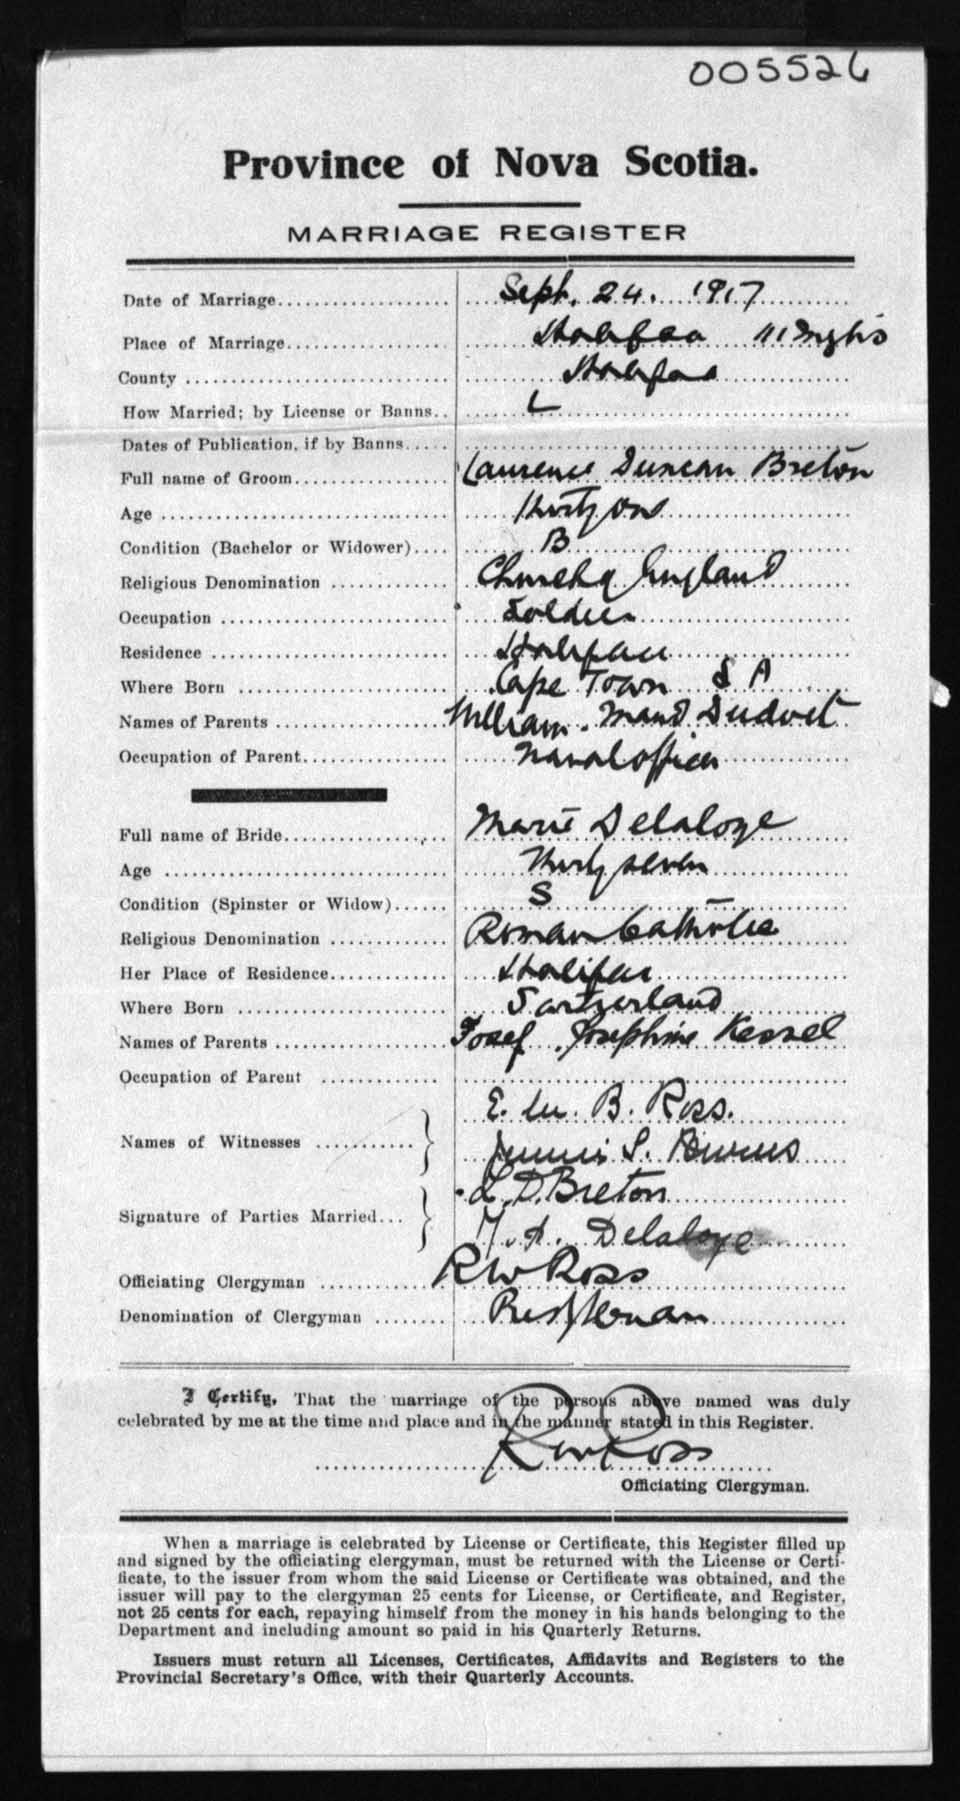 005526
Province of Nova Scotia.
MARRIAGE REGISTER
Date of Marriage Sept. 24. 1917
Place of Marriage Halifax 11 Inglis
County Halifax
How Married; by License or Banns L
Dates of Publication, if by Banns
Full name of Groom Laurence Duncan Breton
Age Thirty one
Condition (Bachelor or Widower) B
Religious Denomination Church of England
Occupation Soldier
Residence Halifax
Where Born Cape Town S A
Names of Parents William. Maud
Occupation of Parent Naval officer
Full name of Bride Marie Delaloye
Age Thirty seven
Condition (Spinster or Widow) S
Religious Denomination Roman Catholic
Her Place of Residence Halifax
Where Born Switzerland
Names of Parents Josef Josephine Kessel
Occupation of Parent
E. B. Ross.
Names of Witnesses
S.
L. D. Breton
Signature of Parties Married
M. A. Delaloye
Officiating Clergyman R W Ross
Denomination of Clergyman Presbyterian
I Certify, That the marriage of the persons above named was duly
celebrated by me at the time and place and in the manner stated in this Register.
R W Ross
Officiating Clergyman.
When a marriage is celebrated by License or Certificate, this Register filled up
and signed by the officiating clergyman, must be returned with the License or Certi-
ficate, to the issuer from whom the said License or Certificate was obtained, and the
issuer will pay to the clergyman 25 cents for License, or Certificate, and Register,
not 25 cents for each, repaying himself from the money in his hands belonging to the
Department and including amount so paid in his Quarterly Returns.
Issuers must return all Licenses, Certificates, Affidavits and Registers to the
Provincial Secretary's Office, with their Quarterly Accounts.